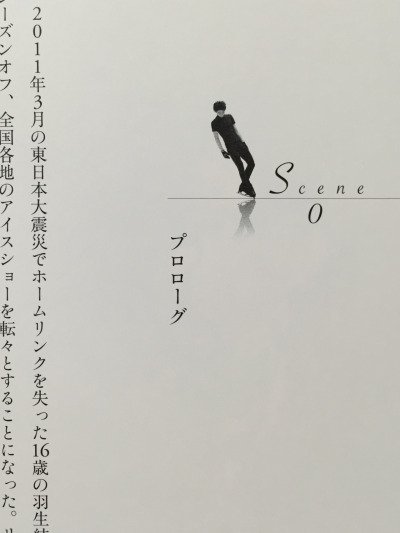 Scene
0
プロローグ
2011年3月の東日本大震災でホームリンクを失った16歳の羽生結
ーズンオフ、全国各地のアイスショーを転々とすることになった。